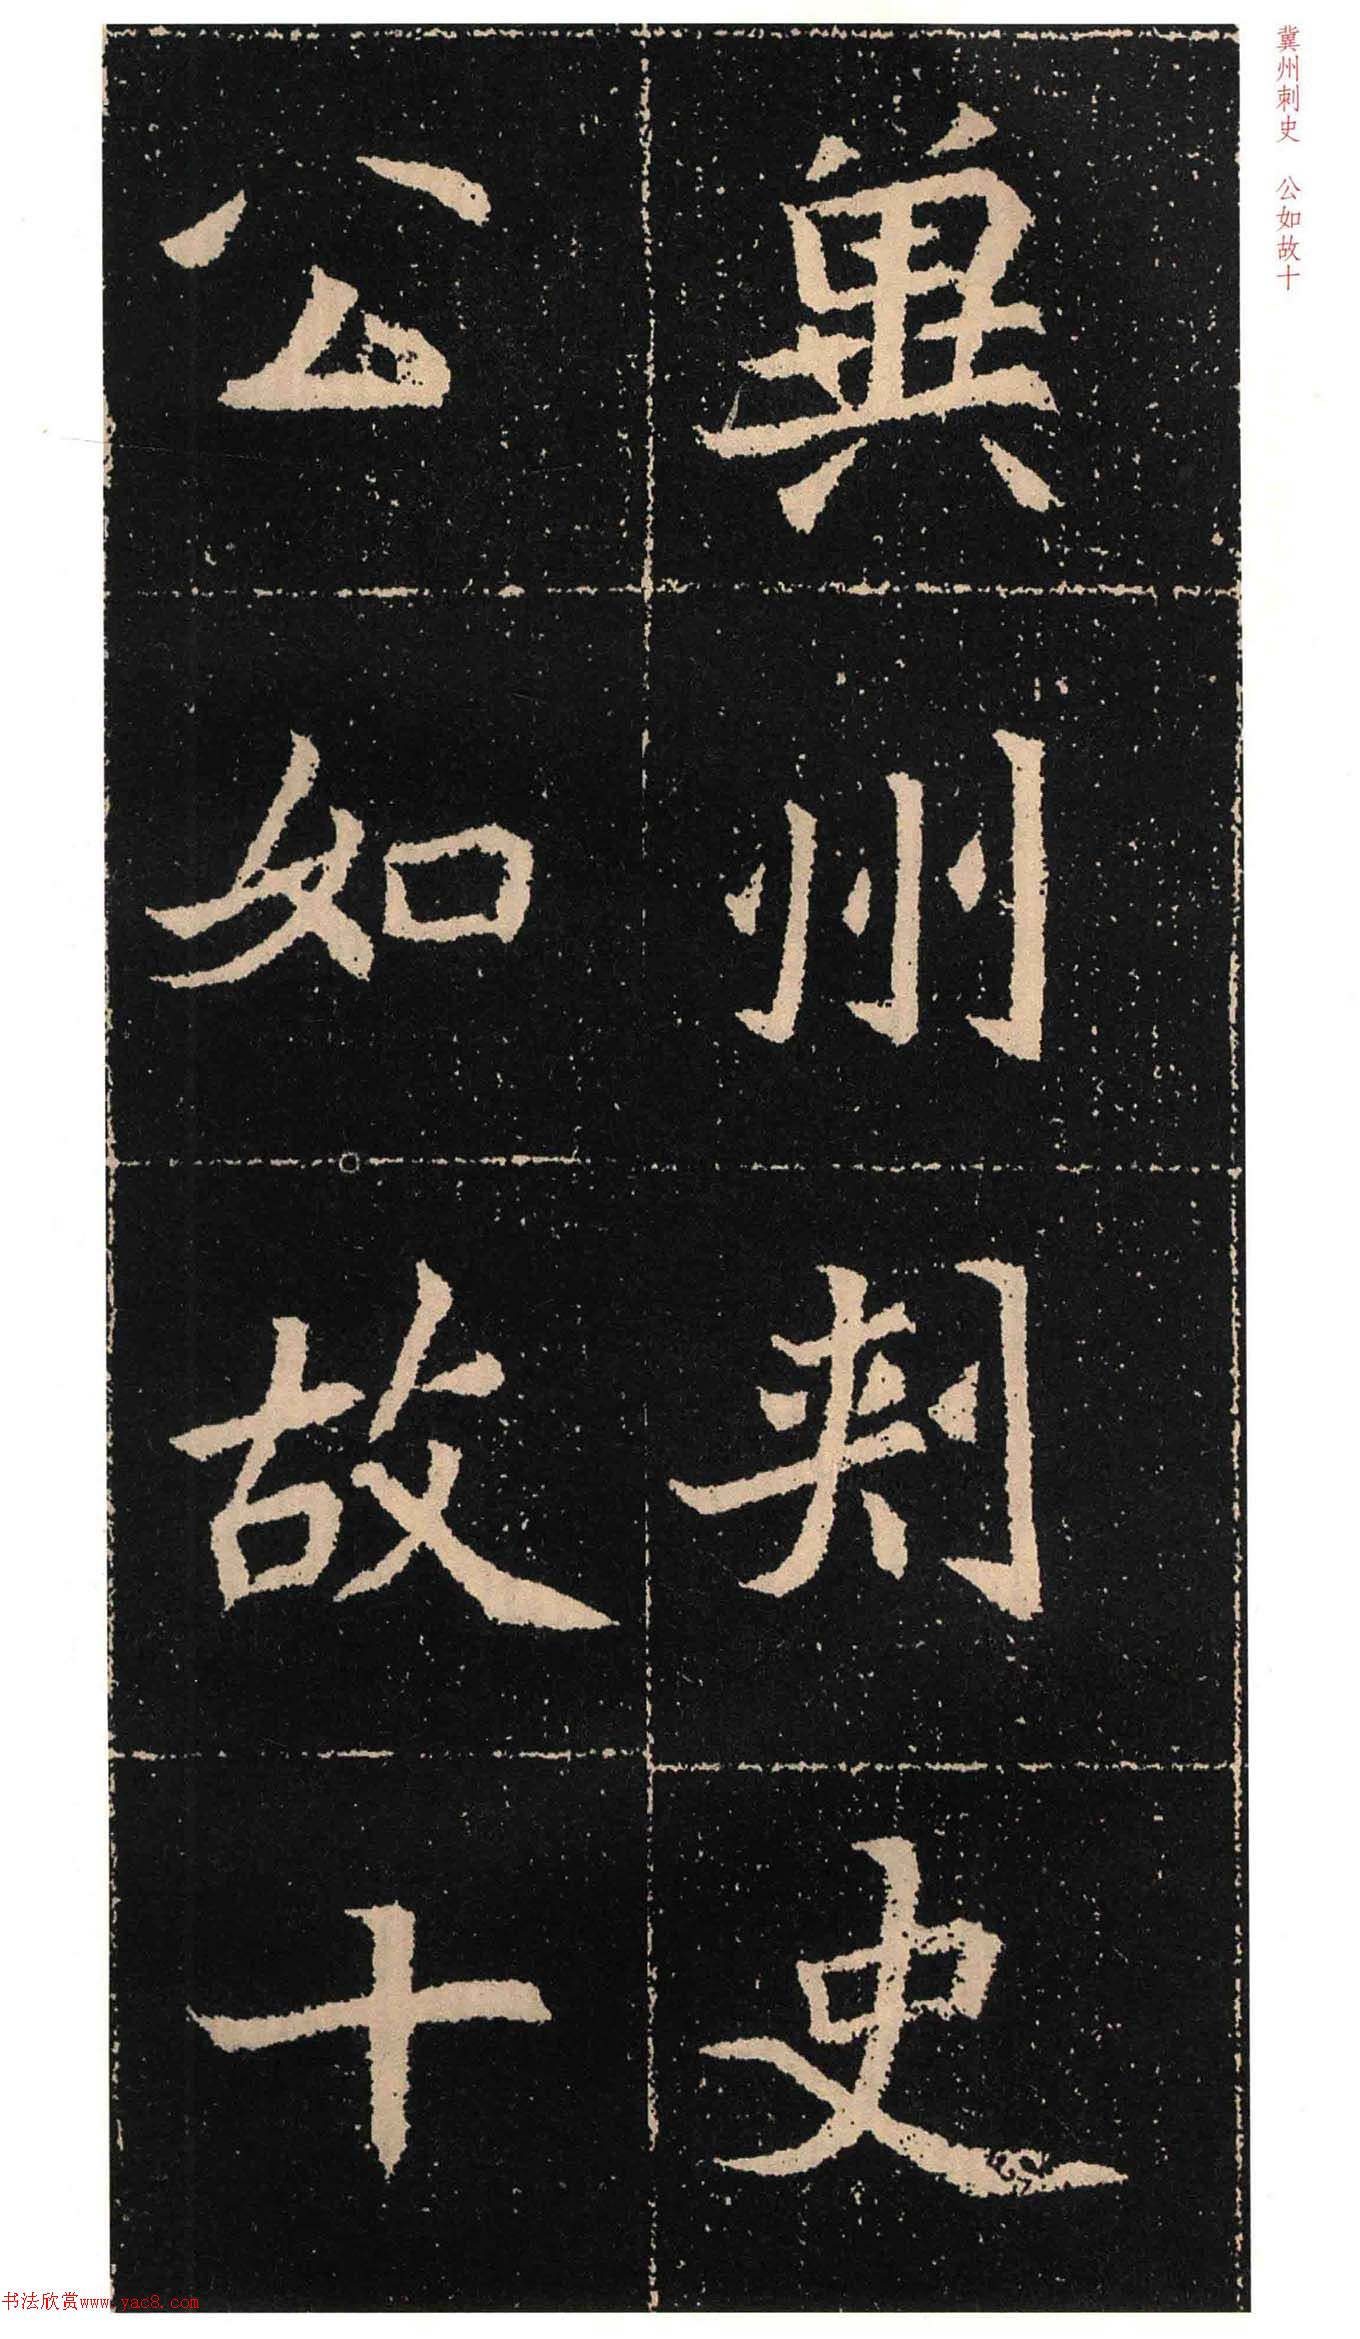 冀州刺史 公如故十
冀州刺史
公如故十
书法欣赏www.yac8.com